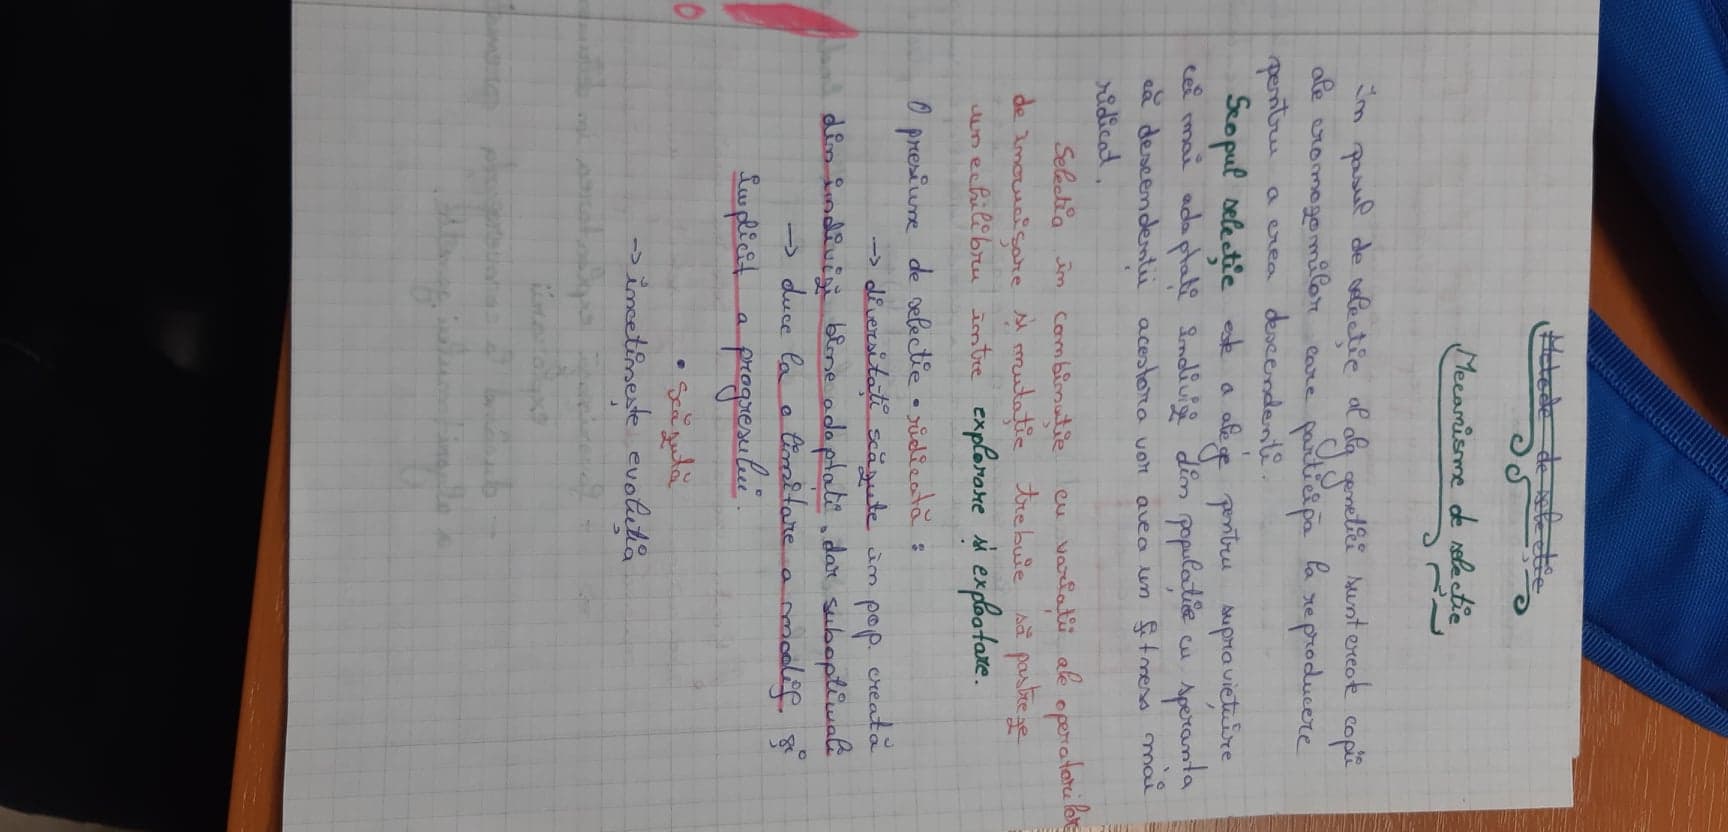 Metode de selecție
Mecanisme de selectie
În pasul de selecție al alg genetici sunt create copii
ale cromozomilor care participă la reproducere
pentru a crea descendenti.
Scopul selecție este a alege pentru supraviețuire
cei mai adaptați indivizi din populație cu speranta
că descendenții acestora vor avea un fitness mai
ridicat.
Selectia în combinație cu variații ale operatorilor
de încrucișare și mutație trebuie să pastreze
un echilibru între explorare și exploatare.
O presiune de selectie • ridicată :
→ diversitați scăzute în pop. creată
din indivizi bine adaptați, dar suboptimali
→ duce la o limitare a modif. și
implicit a progresului.
• scăzută
→ încetinește evoluția